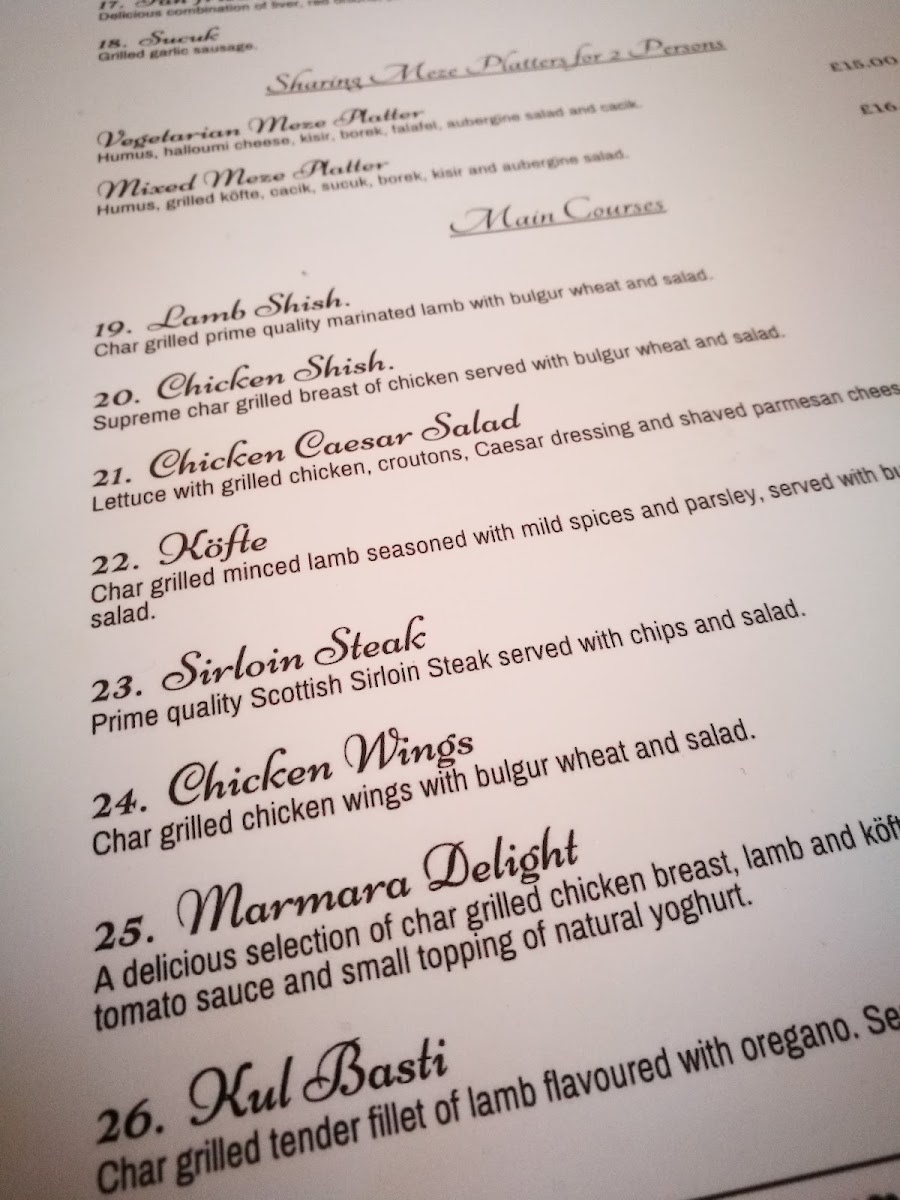 17.
Delicious combination of liver, red
18. Sucuk
Grilled garlic sausage.
Sharing Meze Platters for 2 Persons
Vegetarian Meze Platter £15.00
Humus, halloumi cheese, kisir, borek, falafel, aubergine salad and cacik.
Mixed Meze Platter £16
Humus, grilled köfte, cacik, sucuk, borek, kisir and aubergine salad.
Main Courses
19. Lamb Shish.
Char grilled prime quality marinated lamb with bulgur wheat and salad.
20. Chicken Shish.
Supreme char grilled breast of chicken served with bulgur wheat and salad.
21. Chicken Caesar Salad
Lettuce with grilled chicken, croutons, Caesar dressing and shaved parmesan chees
22. Köfte
Char grilled minced lamb seasoned with mild spices and parsley, served with bu
salad.
23. Sirloin Steak
Prime quality Scottish Sirloin Steak served with chips and salad.
24. Chicken Wings
Char grilled chicken wings with bulgur wheat and salad.
25. Marmara Delight
A delicious selection of char grilled chicken breast, lamb and köft
tomato sauce and small topping of natural yoghurt.
26. Kul Basti
Char grilled tender fillet of lamb flavoured with oregano. Se